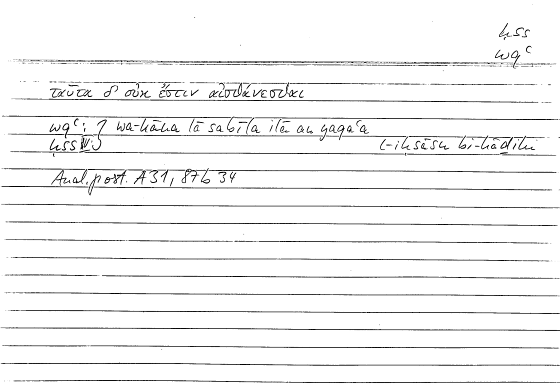 ḥss
wqʿ
ταῦτα δ' οὐκ ἔστιν αἰσθάνεσθαι
wqʿ: wa-kāna lā sabīla ilā an yaqaʿa
ḥss l-iḥsāsu bi-hāḏihi
Anal. post. A31, 87b34